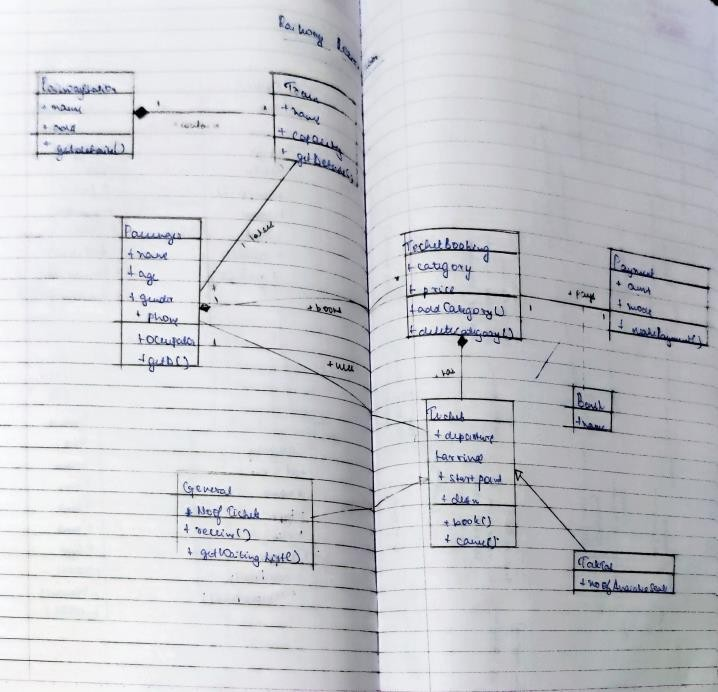 Railway
RailwayStation
+ name
+ getdetails()
1
1
Train
+ name
+ capacity
+ getDetails()
1
Passenger
+ name
+ age
+ gender
+ phone
+ occupation
+ getD()
1
1
1
+ books
*
TicketBooking
+ category
+ price
+ addCategory()
+ deleteCategory()
+ pays
1
1
Payment
+ amt
+ mode
+ makePayment()
+ has
Bank
+ name
Ticket
+ departure
+ arrival
+ start point
+ destn
+ book()
+ cancel()
General
+ No of Ticket
+ getWaiting List()
Tatkal
+ no of Available Seats